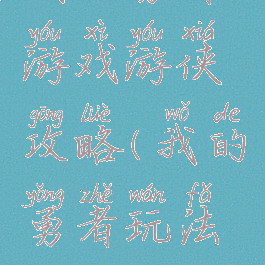 yóu xì yóu xiá
游戏游侠
gōng lüè wǒ de
攻略(我的
yǒng zhě wán fǎ
勇者玩法